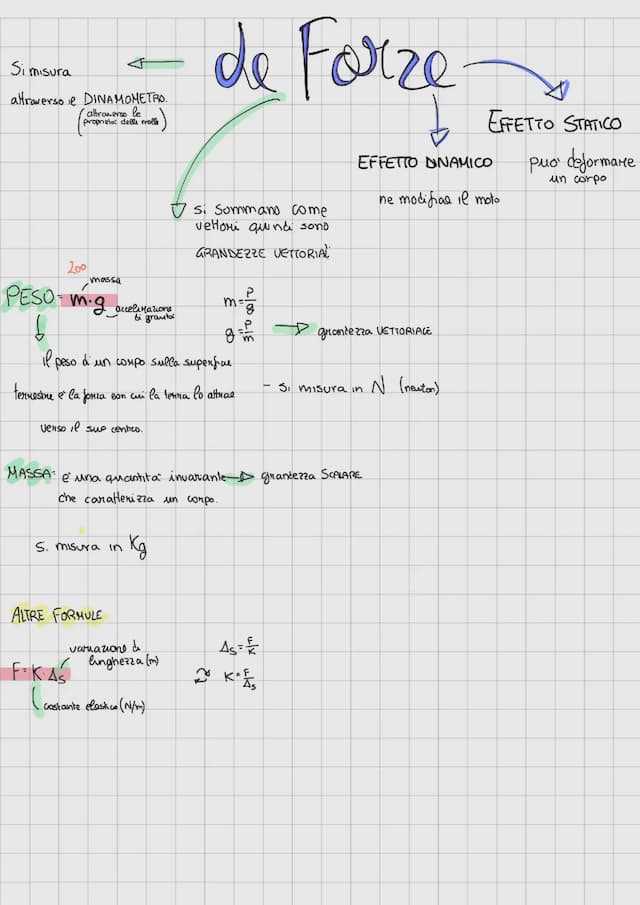 le Forze
Si misura
attraverso il DINAMOMETRO.
(attraverso le
proprietà della molla)
EFFETTO STATICO
può deformare
un corpo
EFFETTO DINAMICO
ne modifica il moto
si sommano come
vettori quindi sono
GRANDEZZE VETTORIALI
200
massa
PESO = m·g
accelerazione
di gravità
m = P/g
g = P/m
grandezza VETTORIALE
il peso di un corpo sulla superficie
terrestre è la forza con cui la terra lo attrae
verso il suo centro.
- Si misura in N (newton)
MASSA: è una quantità invariante
grandezza SCALARE
che caratterizza un corpo.
Si misura in Kg
ALTRE FORMULE
variazione di
lunghezza (m)
F = K·Δs
costante elastica (N/m)
Δs = F/K
K = F/Δs